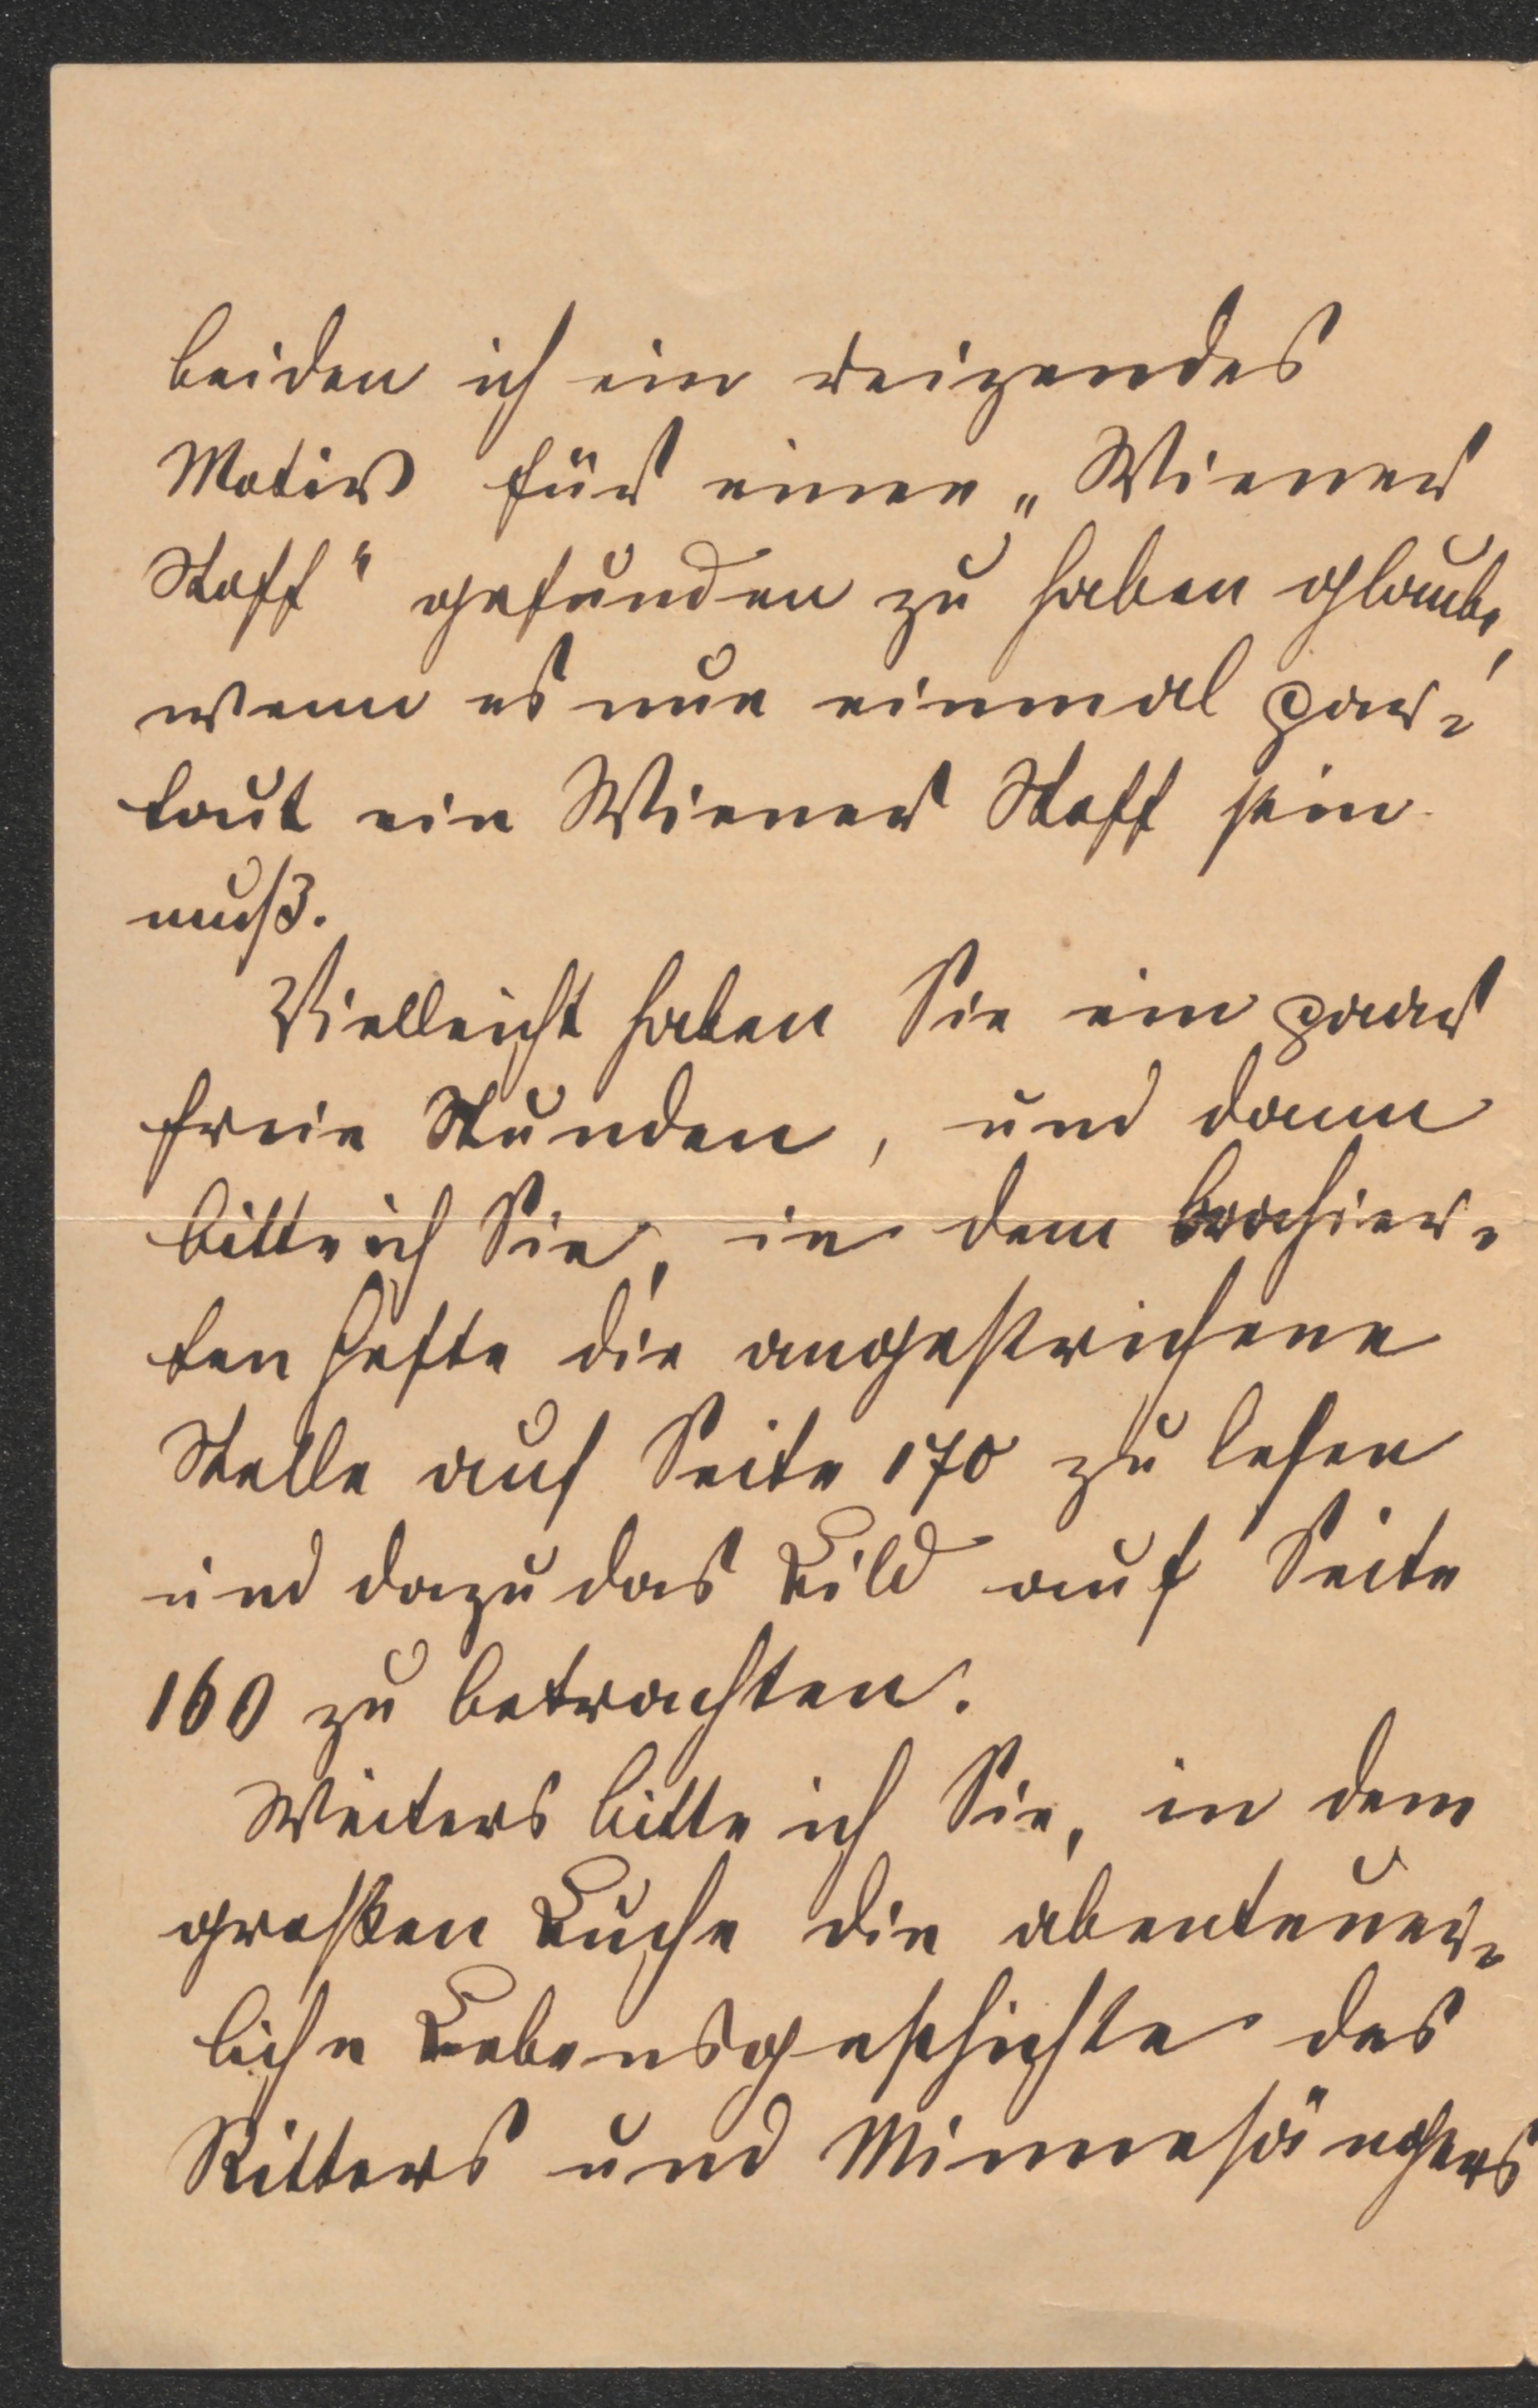 beiden ich ein reizendes
Motiv für einen „Wiener
Stoff“ gefunden zu haben glaube,
wenn es nun einmal par-
tout ein Wiener Stoff sein
muß.
Vielleicht haben Sie ein paar
freie Stunden, und dann
bitte ich Sie, in dem brochier-
ten Hefte die angestrichene
Stelle auf Seite 170 zu lesen
und dazu das Bild auf Seite
160 zu betrachten.
Weiters bitte ich Sie, in dem
großen Buche die abenteuer-
liche Lebensgeschichte des
Ritters und Minnesängers